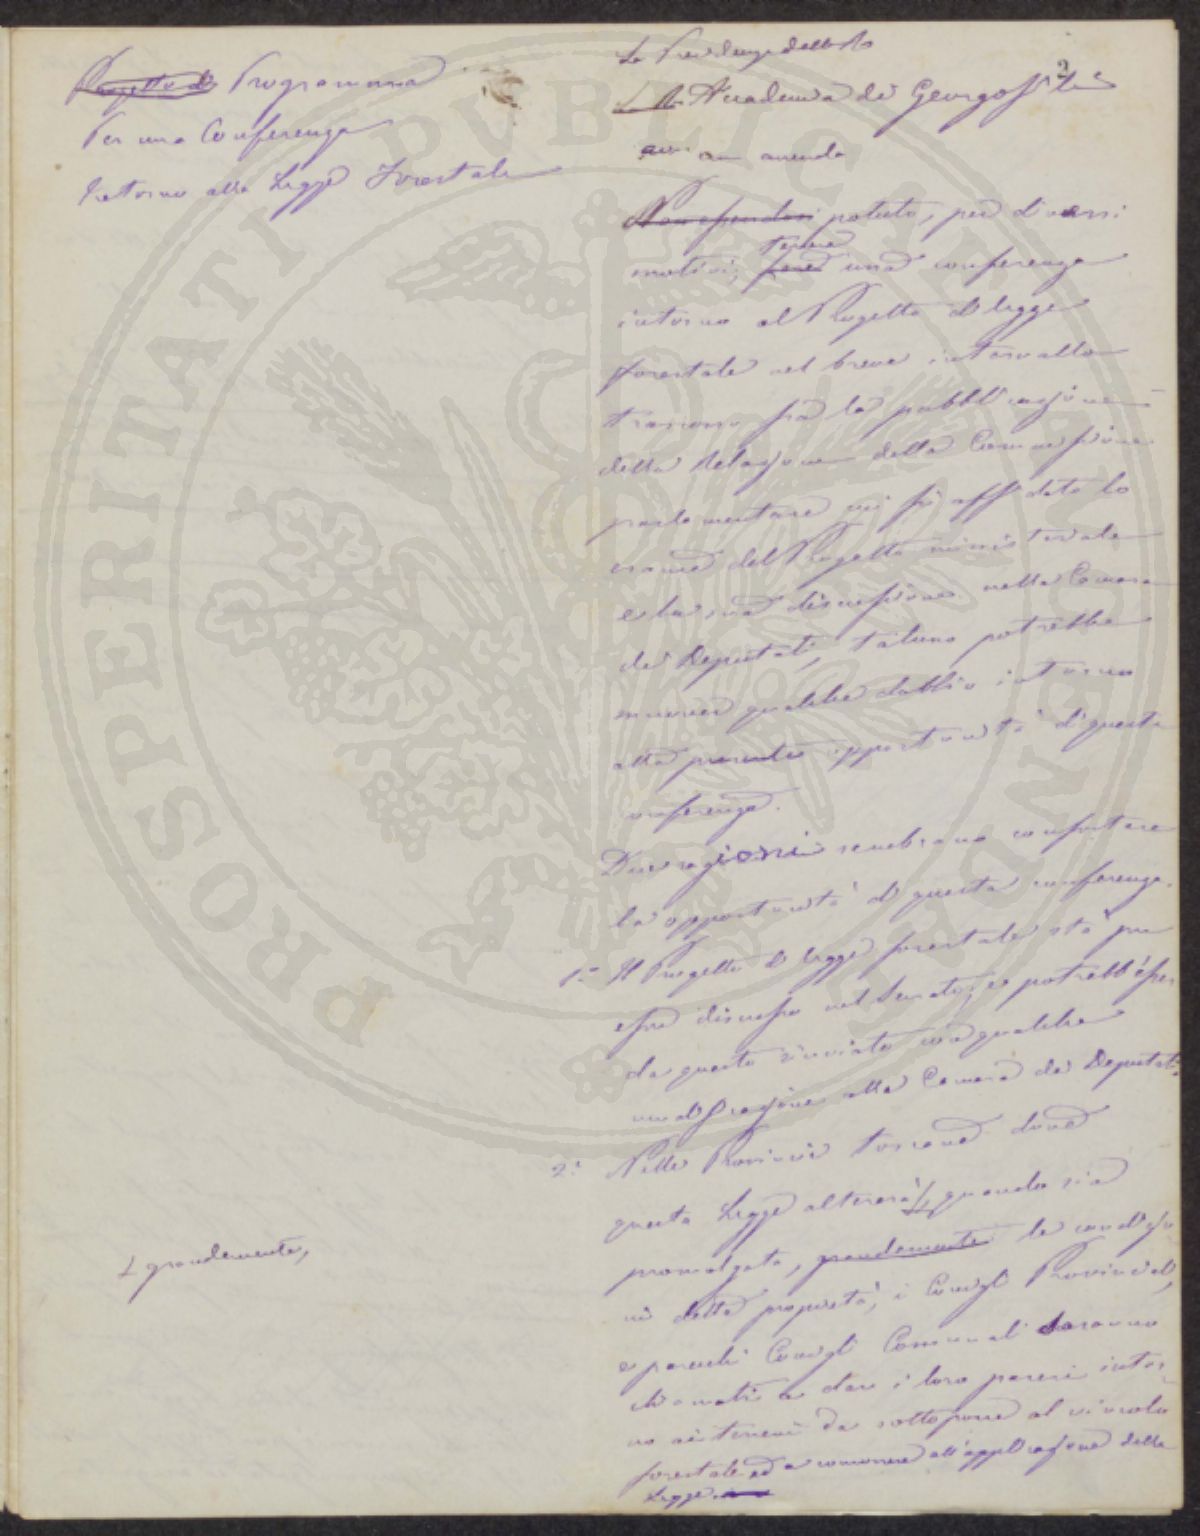 Progetto di Programma
Per una Conferenza
Intorno alla Legge Forestale
La Presidenza della R.
Accademia dei Georgofili
2
non avendo
potuto, per diversi
motivi, tenere una conferenza
intorno al Progetto di legge
forestale nel breve intervallo
trascorso fra la pubblicazione
della Relazione della Commissione
parlamentare cui fu affidato lo
esame del Progetto ministeriale
e la sua discussione nella Camera
dei Deputati, taluno potrebbe
muovere qualche dubbio intorno
alla presente opportunità di questa
conferenza.
Due ragioni sembrano confortare
la opportunità di questa conferenza.
1.° Il Progetto di legge forestale sta per
esser discusso nel Senato, e potrebb'esser
da questo rinviato con qualche
modificazione alla Camera dei Deputati.
2.° Nelle Provincie Toscane dove
questa Legge altererà, quando sia
promulgata, grandemente le condizio
ni della proprietà, i Consigli Provinciali,
e parecchi Consigli Comunali saranno
chiamati a dare i loro pareri intor
no ai terreni da sottoporre al vincolo
forestale ed a all'applicazione della
Legge.
grandemente,
PROSPERITATI PVBLICAE